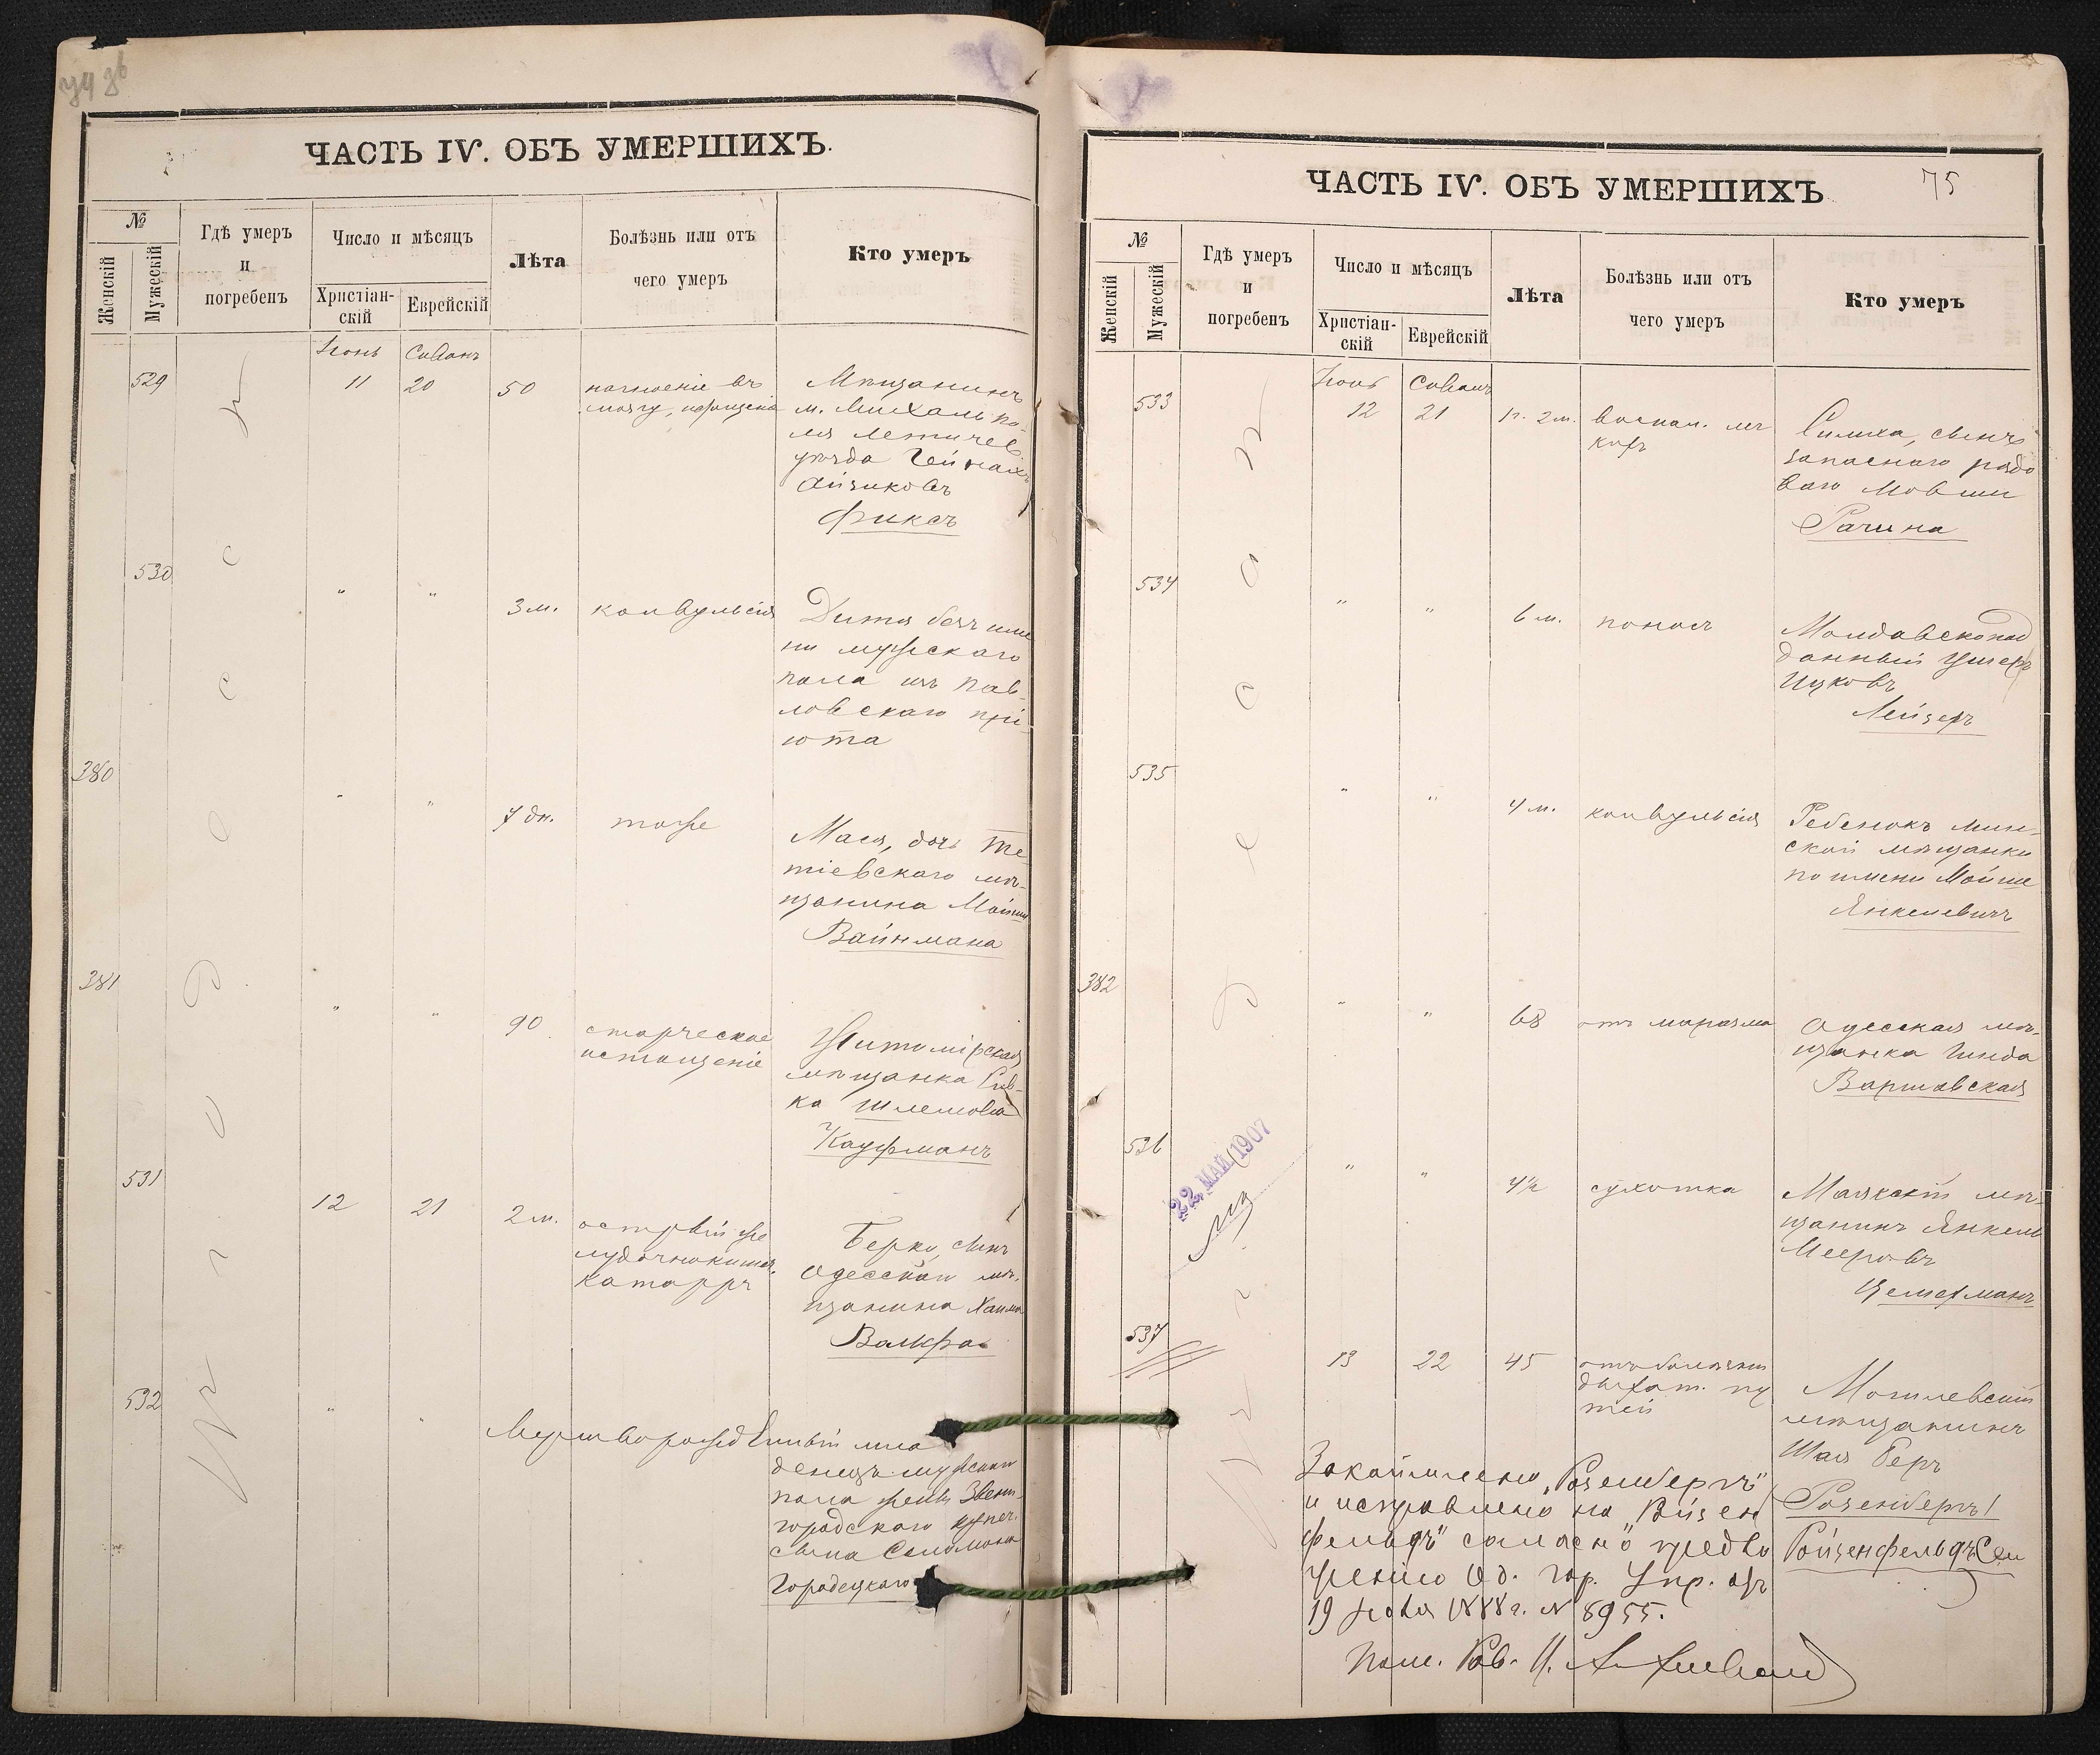 ЧАСТЬ IV. ОБЪ УМЕРШИХЪ.
№
Женскій
Мужескій
Гдѣ умеръ
и
погребенъ
Число и мѣсяцъ
Христіан-
скій
Еврейскій
Лѣта
Болѣзнь или отъ
чего умеръ
Кто умеръ
Іюнь Сиванъ
529 11 20 50
Мѣщанинъ
м. Михальпо-
ля Летичев.
уѣзда
Айзиковъ
Фиксъ
530 " " 3 м. конвульсія
Дитя безъ име
ни мужскаго
пола изъ Пав-
ловскаго прі-
юта
380 " " 7 дн. тоже
Мася, дочь Те-
тіевскаго мѣ-
щанина
Вайнмана
381 " " 90 старческое
истощеніе
Житомірская
мѣщанка Рив-
ка Шлемова
Кауфманъ
531 12 21 2 м. острый же
лудочнокишеч.
катарръ
Берко, сынъ
Одесскаго мѣ-
щанина Хаима
532 " "
Мертворожденный мла
денецъ мужскаго
пола жены Звени-
городскаго купеч.
сына Соломона
Городецкаго
Одесса
ЧАСТЬ IV. ОБЪ УМЕРШИХЪ
75
№
Женскій
Мужескій
Гдѣ умеръ
и
погребенъ
Число и мѣсяцъ
Христіан-
скій
Еврейскій
Лѣта
Болѣзнь или отъ
чего умеръ
Кто умеръ
Іюнь Сиванъ
533 12 21 1 г. 2 м. воспал. лег
кихъ
сынъ
запаснаго рядо
ваго Мовши
Рачина
534 " " 6 м. поносъ
Молдавскопод
данный Ушеръ
Ицковъ
Лейзеръ
535 " " 4 м. конвульсія
Ребенокъ Мин-
ской мѣщанки
по имени Мойше
Янкелевичъ
382 " " 68 отъ маразма
Одесская мѣ-
щанка Гинда
Варшавская
536 " " 4½ сухотка
Маякскій мѣ-
щанинъ Янкель
Мееровъ
537 13 22 45 отъ болѣзни
дыхат. пу
тей
Могилевскій
мѣщанинъ
Шая Беръ
Розенбергъ
Ройзенфельдъ
Одесса
22 МАЙ 1907
Закаймлено „Розенбергъ"
и исправлено на „Ройзен
фельдъ" согласно предло
женію Од. гор. Упр. отъ
19 1888 г. № 8955.
Пом. Рав.